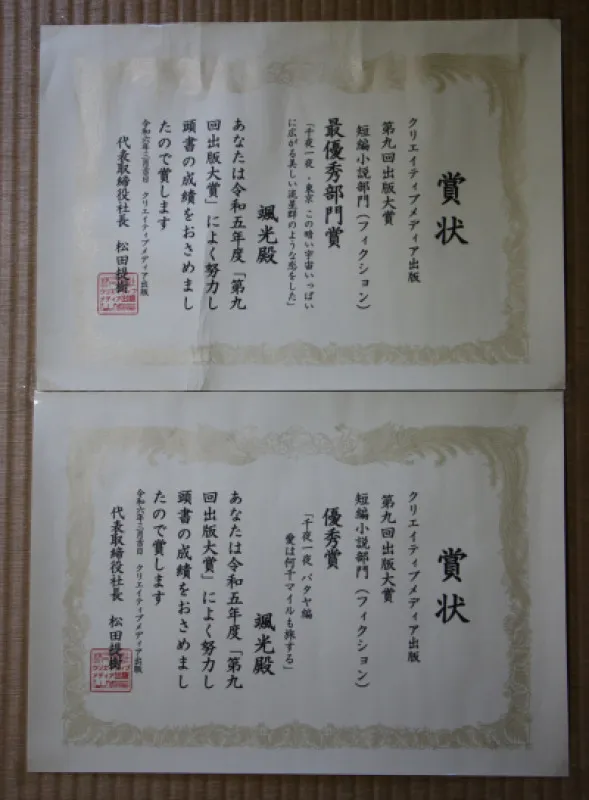 賞状
クリエイティブメディア出版
第九回出版大賞
短編小説部門(フィクション)
最優秀部門賞
「千夜一夜・東京 この暗い宇宙いっぱい
に広がる美しい流星群のような恋をした」
颯光殿
あなたは令和五年度「第九
回出版大賞」によく努力し
頭書の成績をおさめまし
たので賞します
令和六年二月吉日 クリエイティブメディア出版
代表取締役社長 松田提樹
賞状
クリエイティブメディア出版
第九回出版大賞
短編小説部門(フィクション)
優秀賞
「千夜一夜 パタヤ編
愛は何千マイルも旅する」
颯光殿
あなたは令和五年度「第九
回出版大賞」によく努力し
頭書の成績をおさめまし
たので賞します
令和六年二月吉日 クリエイティブメディア出版
代表取締役社長 松田提樹